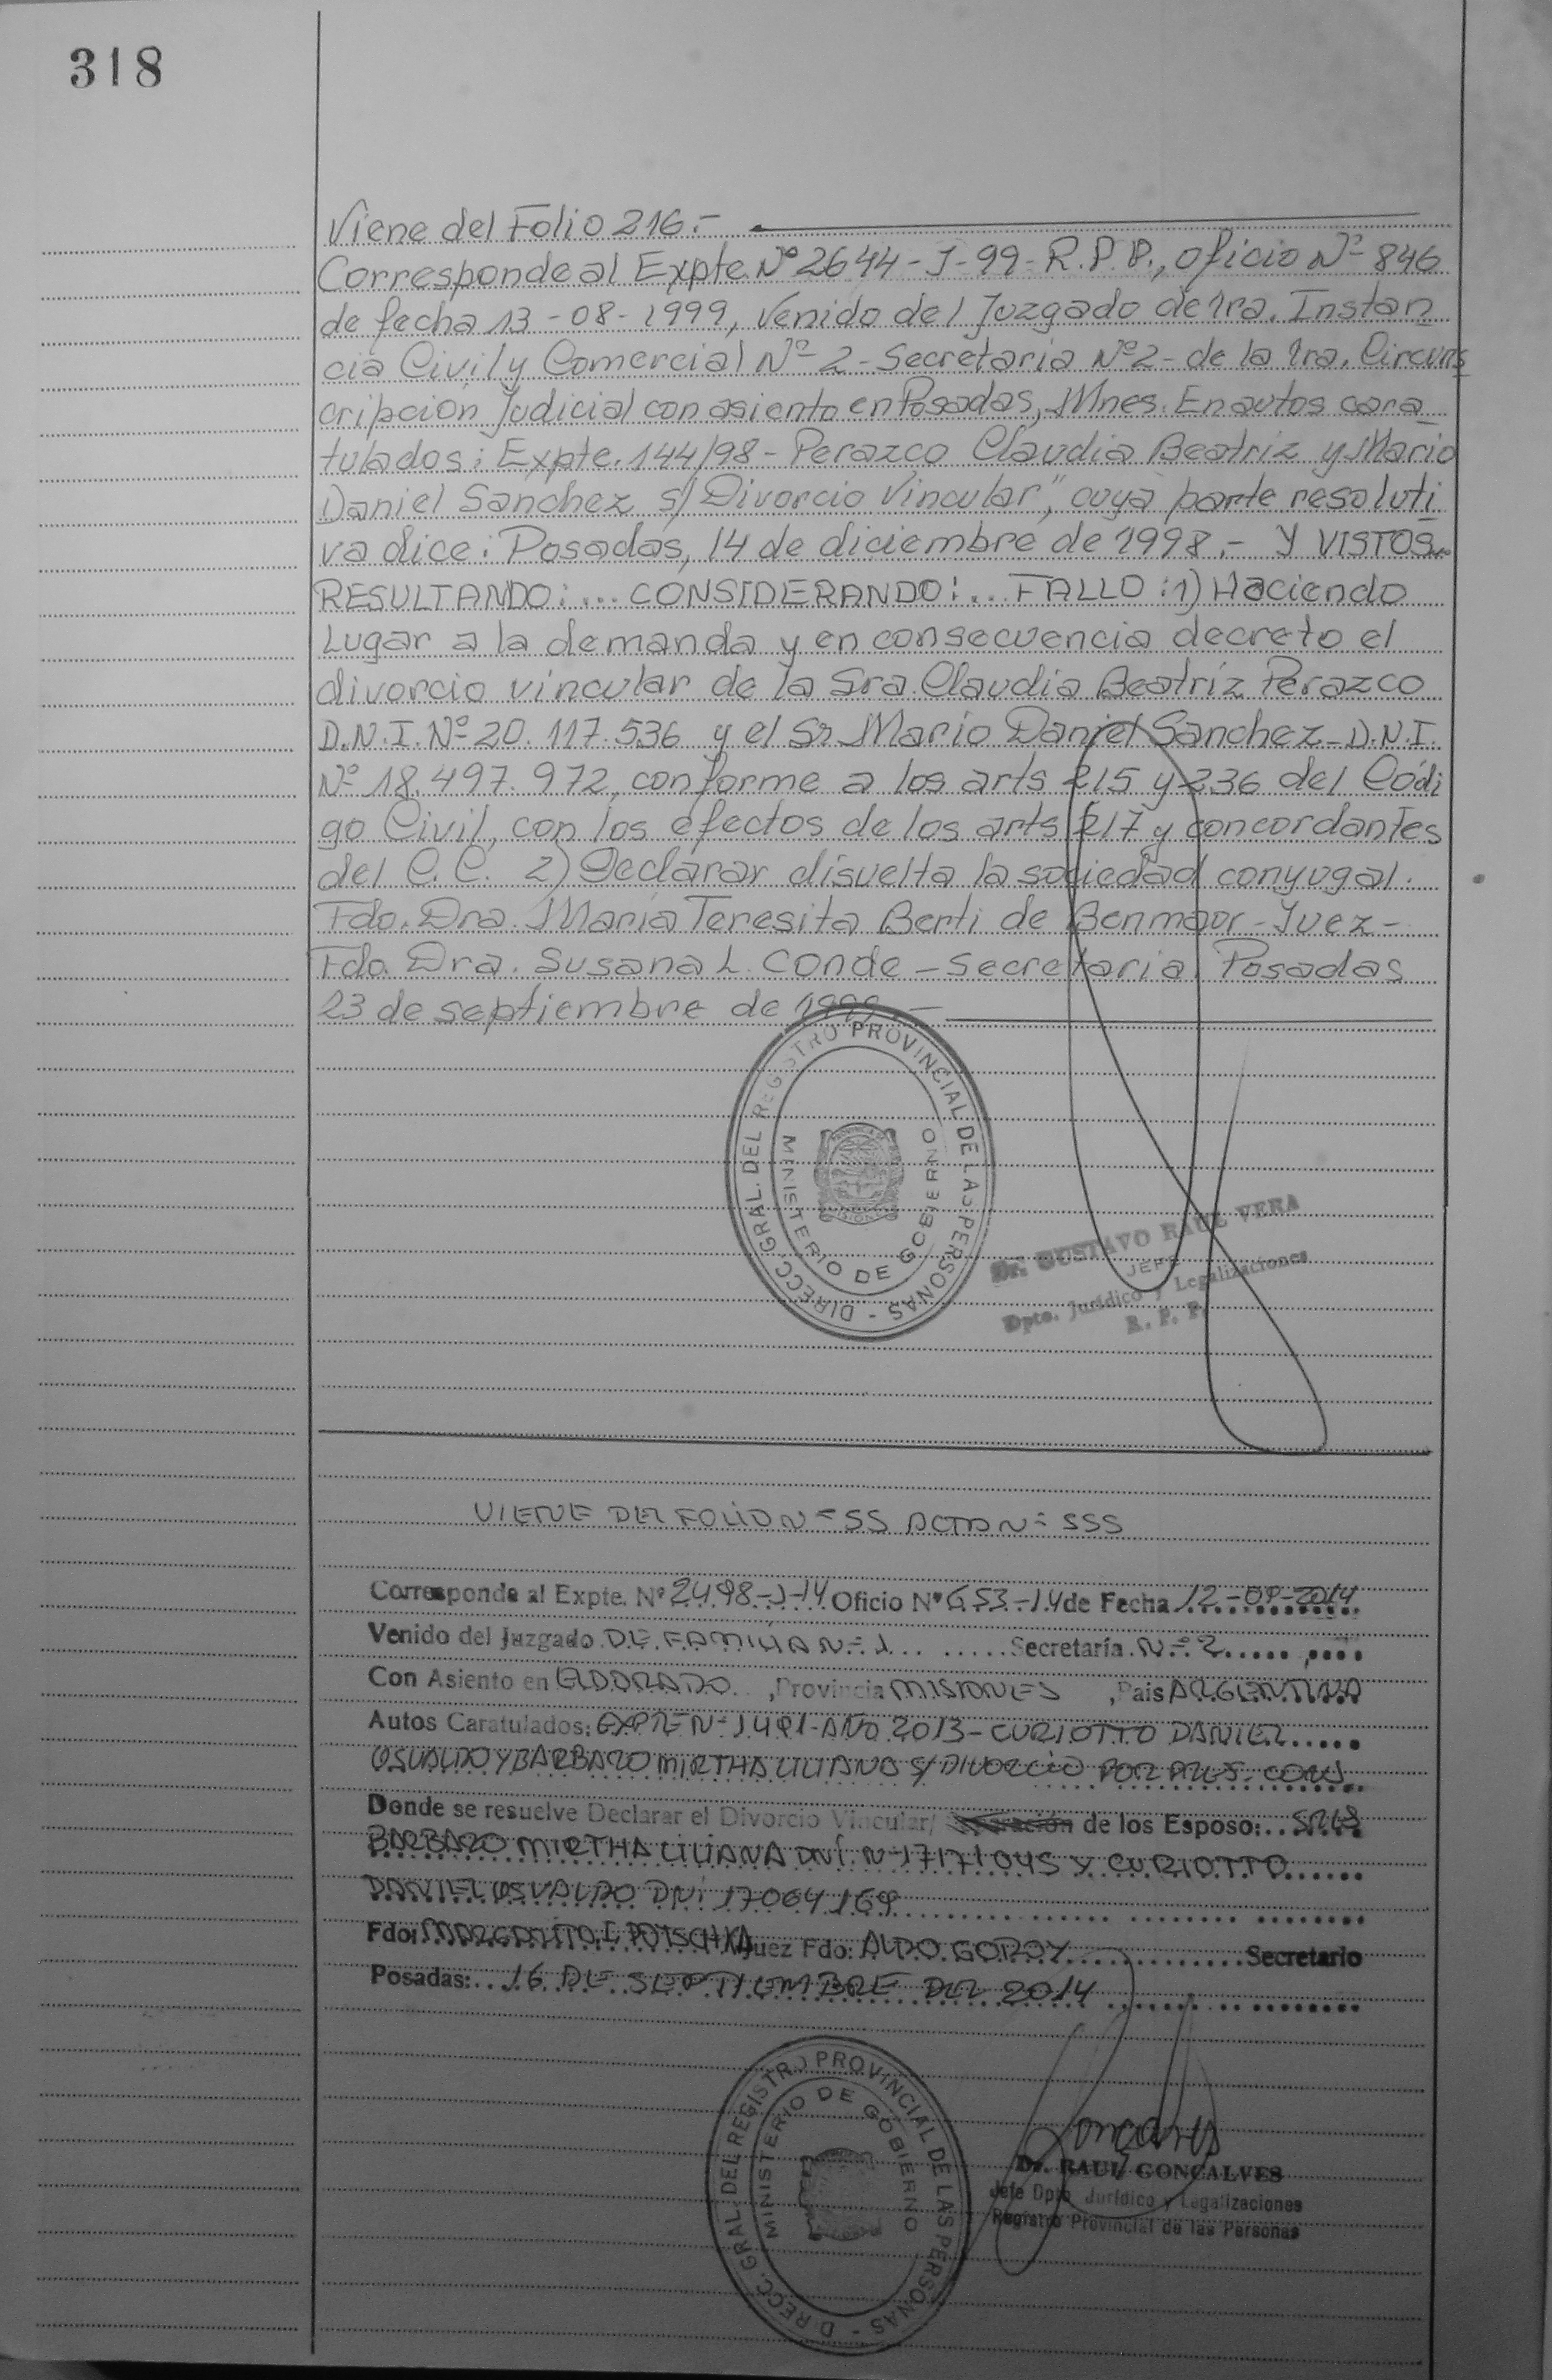 318
Viene del Folio 216.-
Corresponde al Expte Nº 2644-J-99-R.P.P., oficio Nº 846
de fecha 13-08-1999, Venido del Juzgado de 1ra. Instan
cia Civil y Comercial Nº 2-Secretaria Nº2- de la 1ra. Circuns
cripción Judicial con asiento en Posadas, Mnes. En autos cara
tulados: Expte. 144/98- Perazco Claudia Beatriz y Mario
Daniel Sanchez s/ Divorcio Vincular", cuya parte resoluti
va dice: Posadas, 14 de diciembre de 1998.- Y VISTOS...
RESULTANDO:... CONSIDERANDO:... FALLO: 1) Haciendo
Lugar a la demanda y en consecuencia decreto el
divorcio vincular de la Sra. Claudia Beatríz Perazco
D.N.I. Nº 20.117.536 y el Sr. Mario Daniel Sanchez- D.N.I.
Nº 18.497.972, conforme a los arts 215 y 236 del Códi
go Civil, con los efectos de los arts 217 y concordantes
del C.C. 2) Declarar disuelta la sociedad conyugal.
Fdo. Dra. María Teresita Berti de Benmaor-Juez-
Fdo. Dra. Susana L. Conde-Secretaria. Posadas
23 de septiembre de 1999.-
DIRECC. GRAL. DEL REGISTRO PROVINCIAL DE LAS PERSONAS -
MINISTERIO DE GOBIERNO
Dr. GUSTAVO RAUL VERA
JEFE
Dpto. Jurídico y Legalizaciones
R. P. P.
VIENE DEL FOLIO Nº 55 ACTA Nº 555
Corresponde al Expte. Nº 2498-J-14 Oficio Nº 653-14 de Fecha 12-09-2014
Venido del Juzgado DE FAMILIA Nº 1 Secretaría Nº 2
Con Asiento en ELDORADO, Provincia MISIONES, Pais ARGENTINA
Autos Caratulados: EXPTE Nº 1491-AÑO 2013-CURIOTTO DANIEL
OSVALDO Y BARBARO MIRTHA LILIANA S/ DIVORCIO POR PRES. CONJ.
Donde se resuelve Declarar el Divorcio Vincular/ de los Esposo: SRES
BARBARO MIRTHA LILIANA DNI Nº 17171045 Y CURIOTTO
DANIEL OSVALDO DNI 17064169
Fdo: MARGARITA E POTSCHKA Juez Fdo: ALDO GODOY Secretario
Posadas: 16 DE SEPTIEMBRE DEL 2014
DIRECC. GRAL. DEL REGISTRO PROVINCIAL DE LAS PERSONAS -
MINISTERIO DE GOBIERNO
Dr. RAUL GONCALVES
Jefe Dpto Jurídico y Legalizaciones
Registro Provincial de las Personas